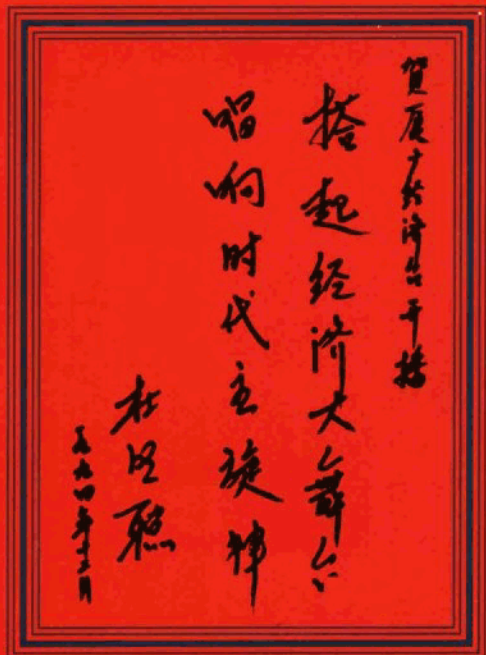 贺厦广经济台开播
搭起经济大舞台
唱响时代主旋律
杜明聪
一九九四年十二月